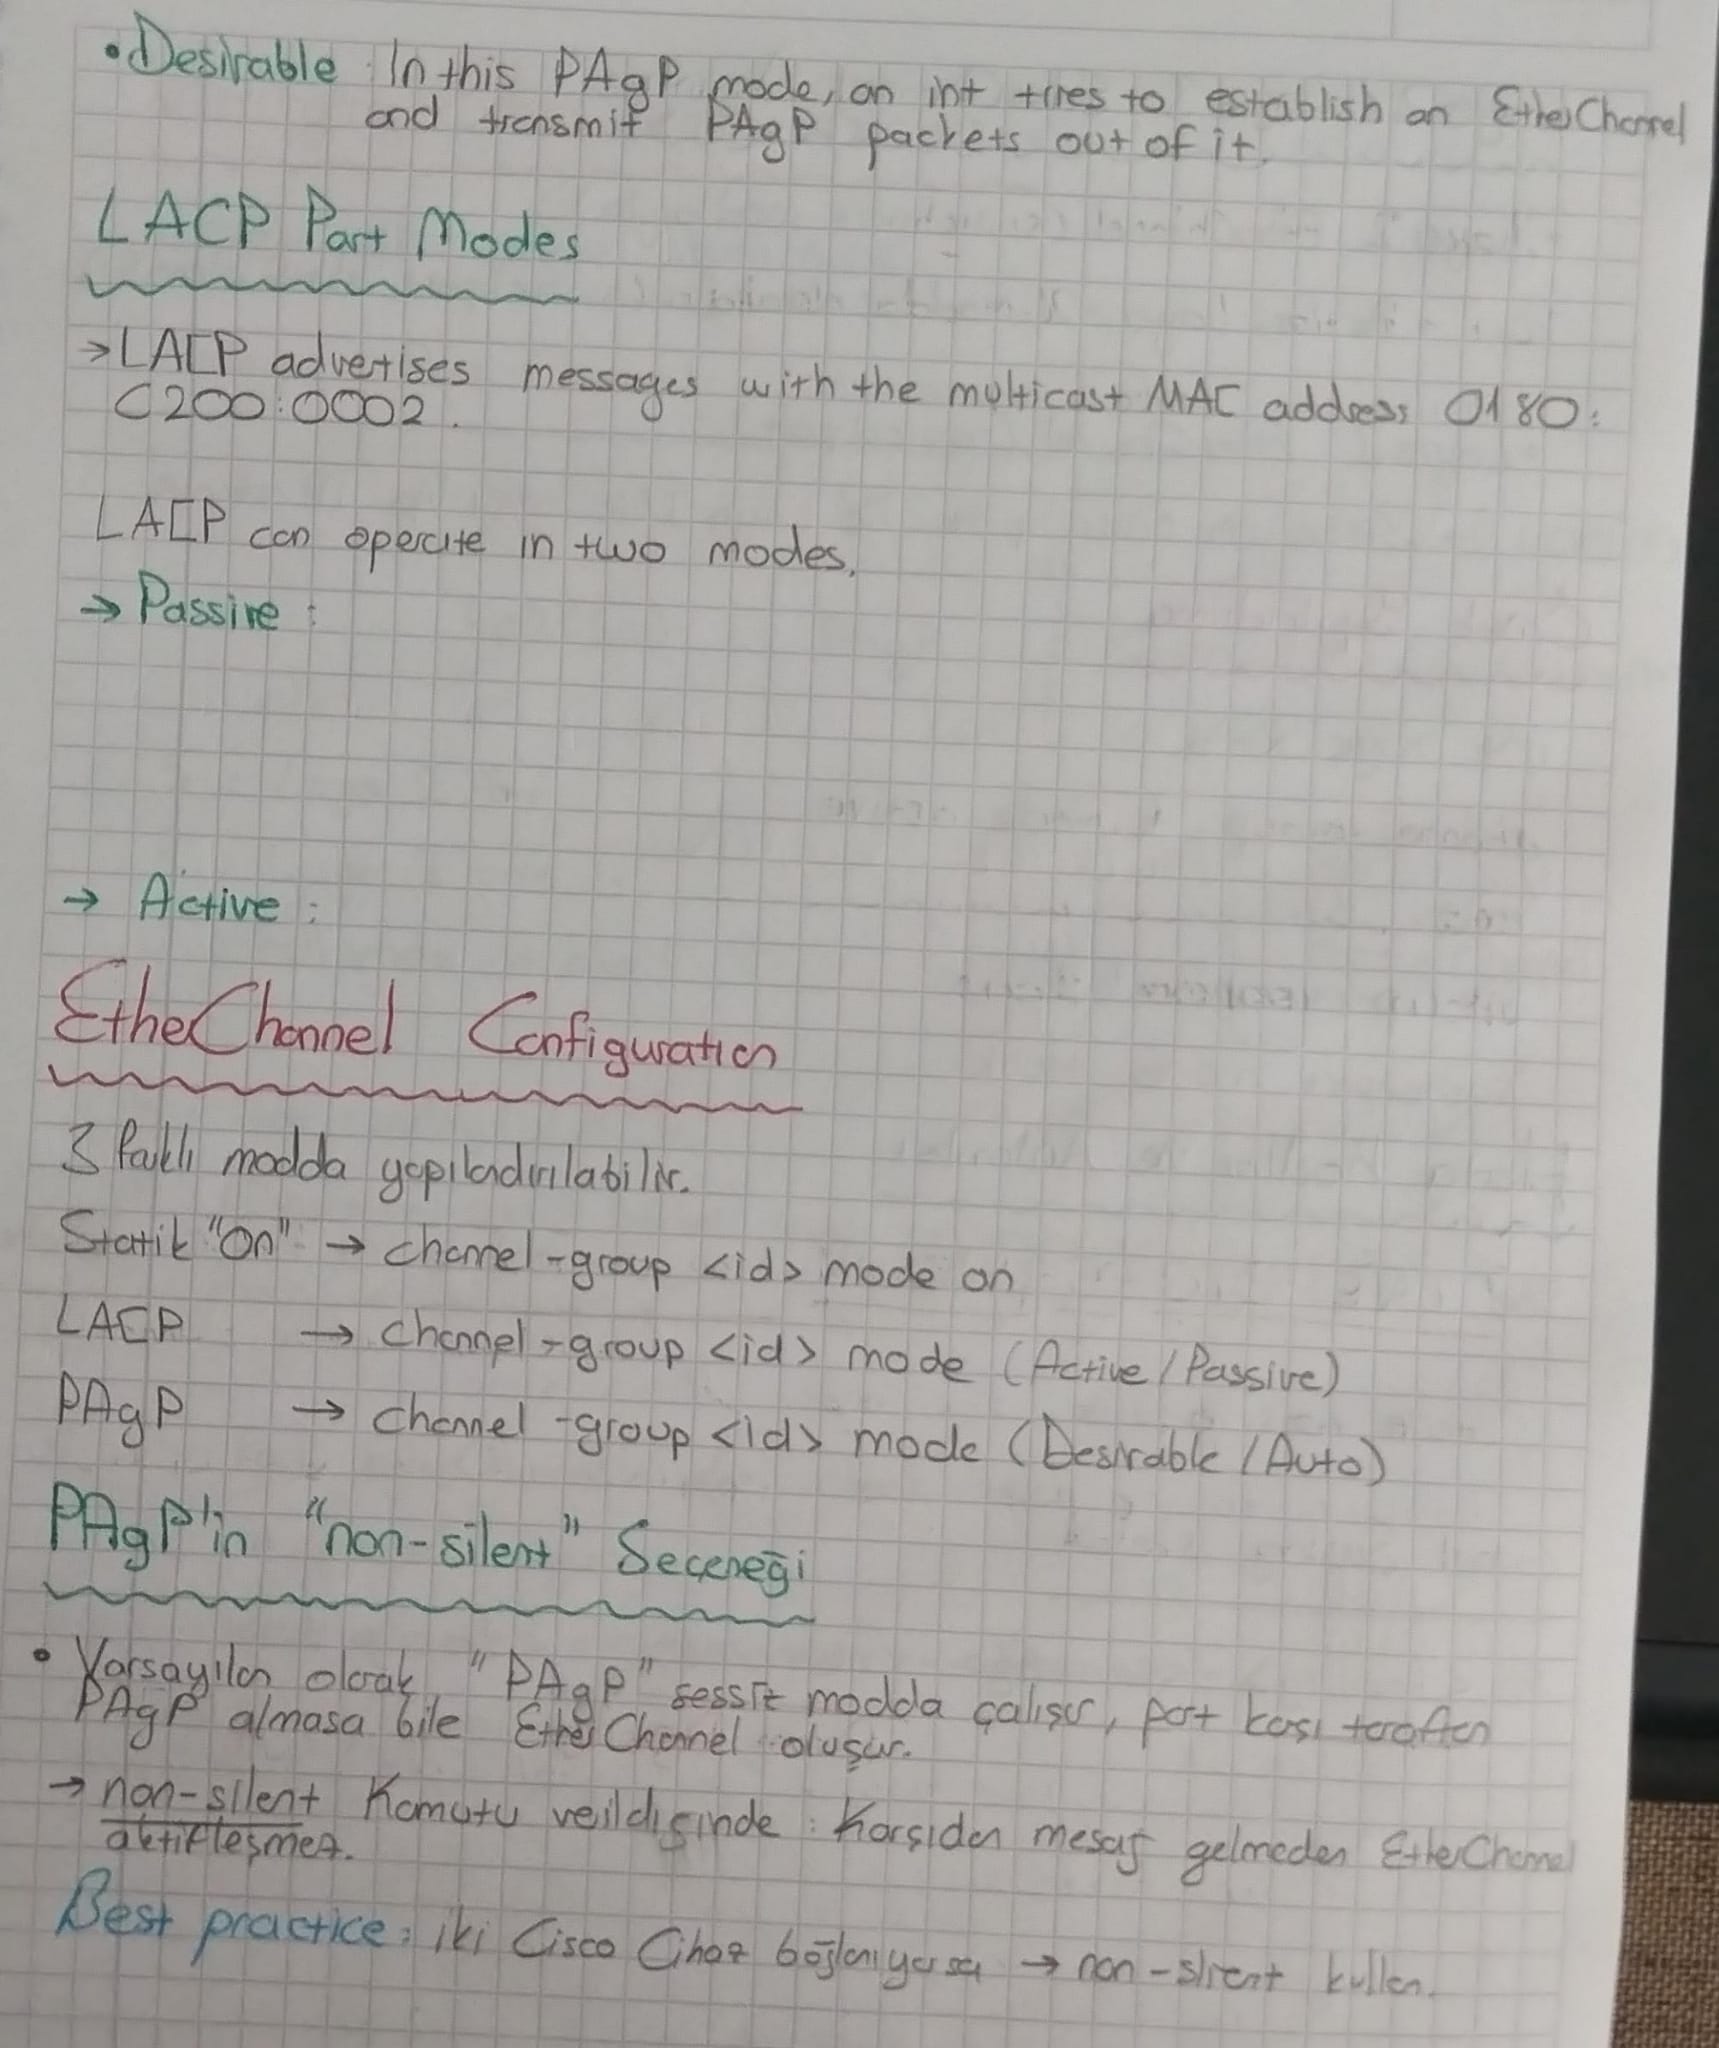 • Desirable : In this PAgP mode, an int tires to establish an EtherChannel
and transmit PAgP packets out of it.
LACP Port Modes
→ LACP advertises messages with the multicast MAC address 0180:
C200:0002.
LACP can operate in two modes.
→ Passive :
→ Active :
EtherChannel Configuration
3 farklı modda yapılandırılabilir.
Statik "On" → channel-group <id> mode on
LACP → channel-group <id> mode (Active/Passive)
PAgP → channel-group <id> mode (Desirable/Auto)
PAgP'in "non-silent" Seçeneği
• Varsayılan olarak "PAgP" sessiz modda çalışır, port karşı taraftan
PAgP almasa bile EtherChannel oluşur.
→ non-silent Komutu verildiğinde : Karşıdan mesaj gelmeden EtherChannel
aktifleşmez.
Best practice: iki Cisco Cihaz bağlanıyorsa → non-silent kullan.